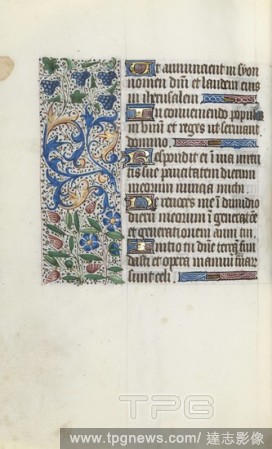 Ut annuncient in syon
nomen dñi et laudem eius
in iherusalem
In conueniendo populos
in vnũ et reges ut seruiant
domino
Respondit ei in via uirtu
tis sue paucitatem dierum
meorum nuncia michi
Ne reuoces me ĩ dimidio
dierũ meorum ĩ generatõe
et generationem anni tui
Initio tu dñe terrã fun
dasti et opera manuũ tuar
sunt celi
TPG
www.tpgnews.com / 達志影像